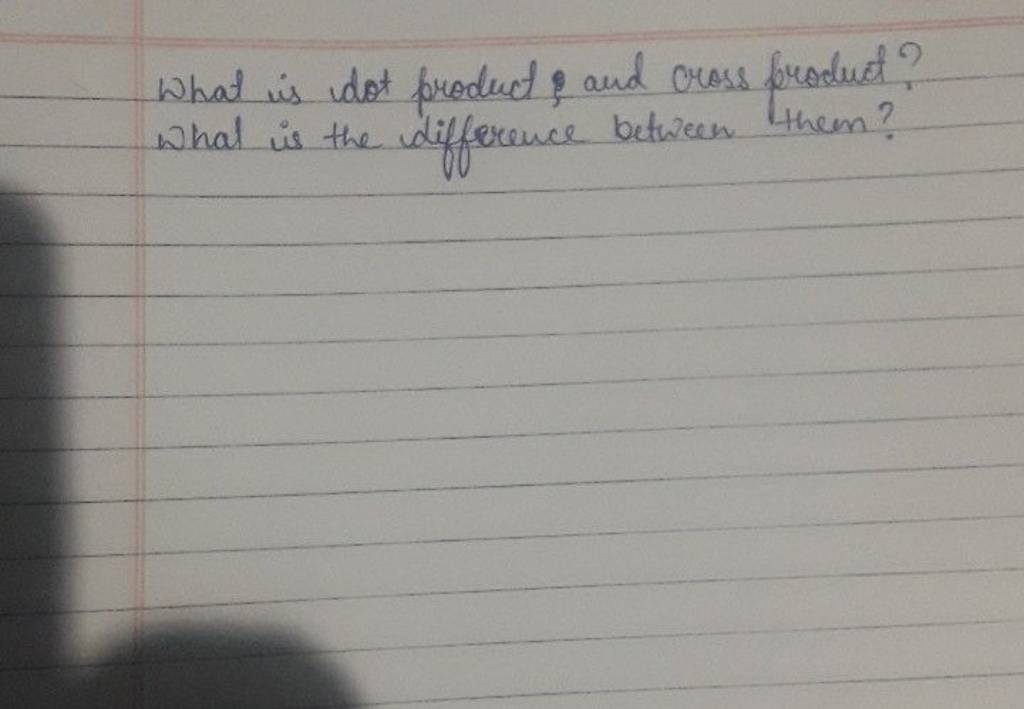 What is dot product and cross product?
What is the difference between them?